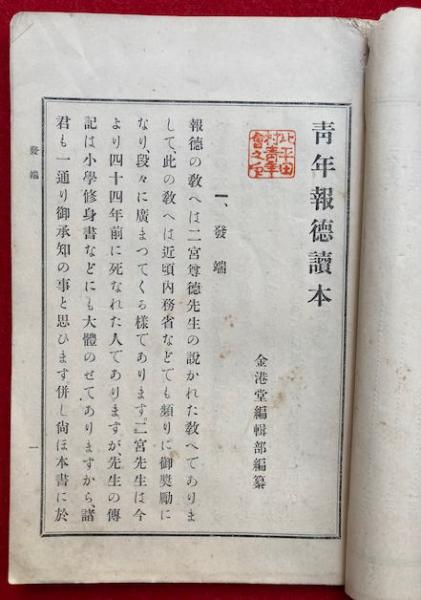 靑年報德讀本
北平田
村靑年
會之印
金港堂編輯部編纂
一、發端
報德の敎へは二宮尊德先生の說かれた敎へでありま
して、此の敎へは近頃內務省などでも頻りに御奬勵に
なり、段々に廣まつてくる樣であります。二宮先生は今
より四十四年前に死なれた人でありますが、先生の傳
記は小學修身書などにも大體のせてありますから、諸
君も一通り御承知の事と思ひます併し尙ほ本書に於
發端
一